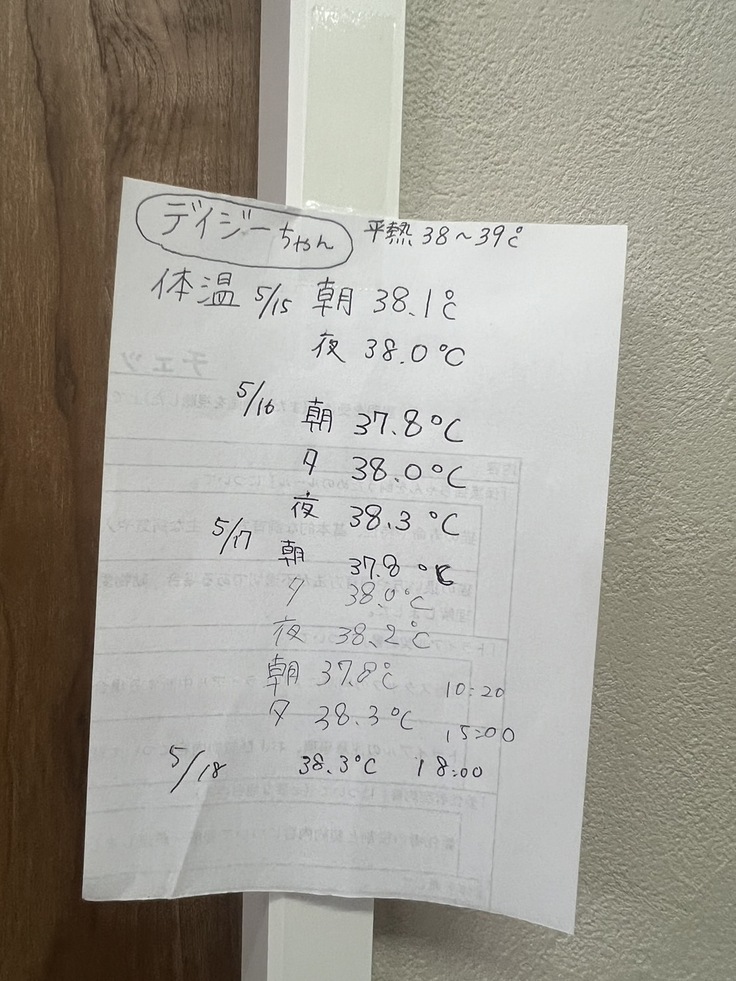 デイジーちゃん 平熱 38～39℃
体温 5/15 朝 38.1℃
夜 38.0℃
5/16 朝 37.8℃
夕 38.0℃
夜 38.3℃
5/17 朝 37.8℃
夕 38.0℃
夜 38.2℃
朝 37.8℃ 10:20
夕 38.3℃ 15:00
5/18 38.3℃ 18:00